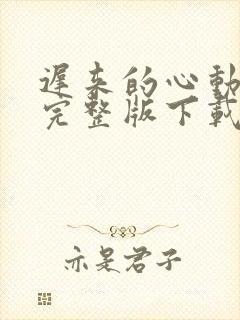 遲来的心動
完整版下載
亦是君子